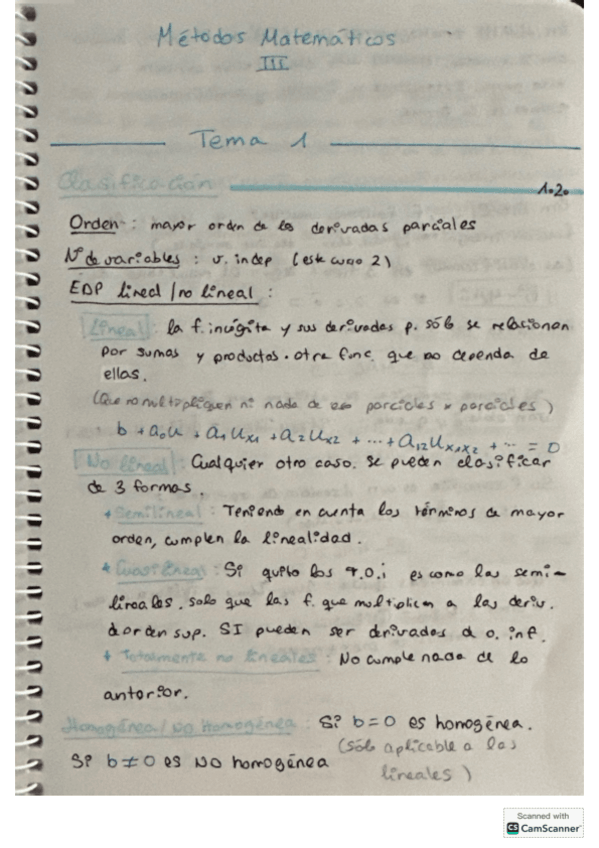 Métodos Matemáticos
III
Tema 1
Clasificación 1.2.
Orden : mayor orden de las derivadas parciales
Nº de variables : v. indep (este curso 2)
EDP lineal / no lineal :
Lineal : la f. incógita y sus derivadas p. sólo se relacionan
por sumas y productos . otra func. que no dependa de
ellas.
(Que no multipliquen ni nada de eso parciales x parciales)
b + a₀u + a₁uₓ₁ + a₂uₓ₂ + ... + a₁₂uₓ₁ₓ₂ + ... = 0
No lineal : Cualquier otro caso. Se pueden clasificar
de 3 formas.
+ Semilineal : Teniendo en cuenta los términos de mayor
orden, cumplen la linealidad.
+ Cuasilineal : Si quito los T.O.i es como las semi-
lineales. solo que las f. que multiplican a las deriv.
d orden sup. SI pueden ser derivadas d o. inf.
+ Totalmente no lineales : No cumple nada de lo
anterior.
Homogénea / No Homogénea : Si b = 0 es homogénea.
Si b ≠ 0 es NO homogénea (sólo aplicable a las
lineales)
Scanned with
CS CamScanner